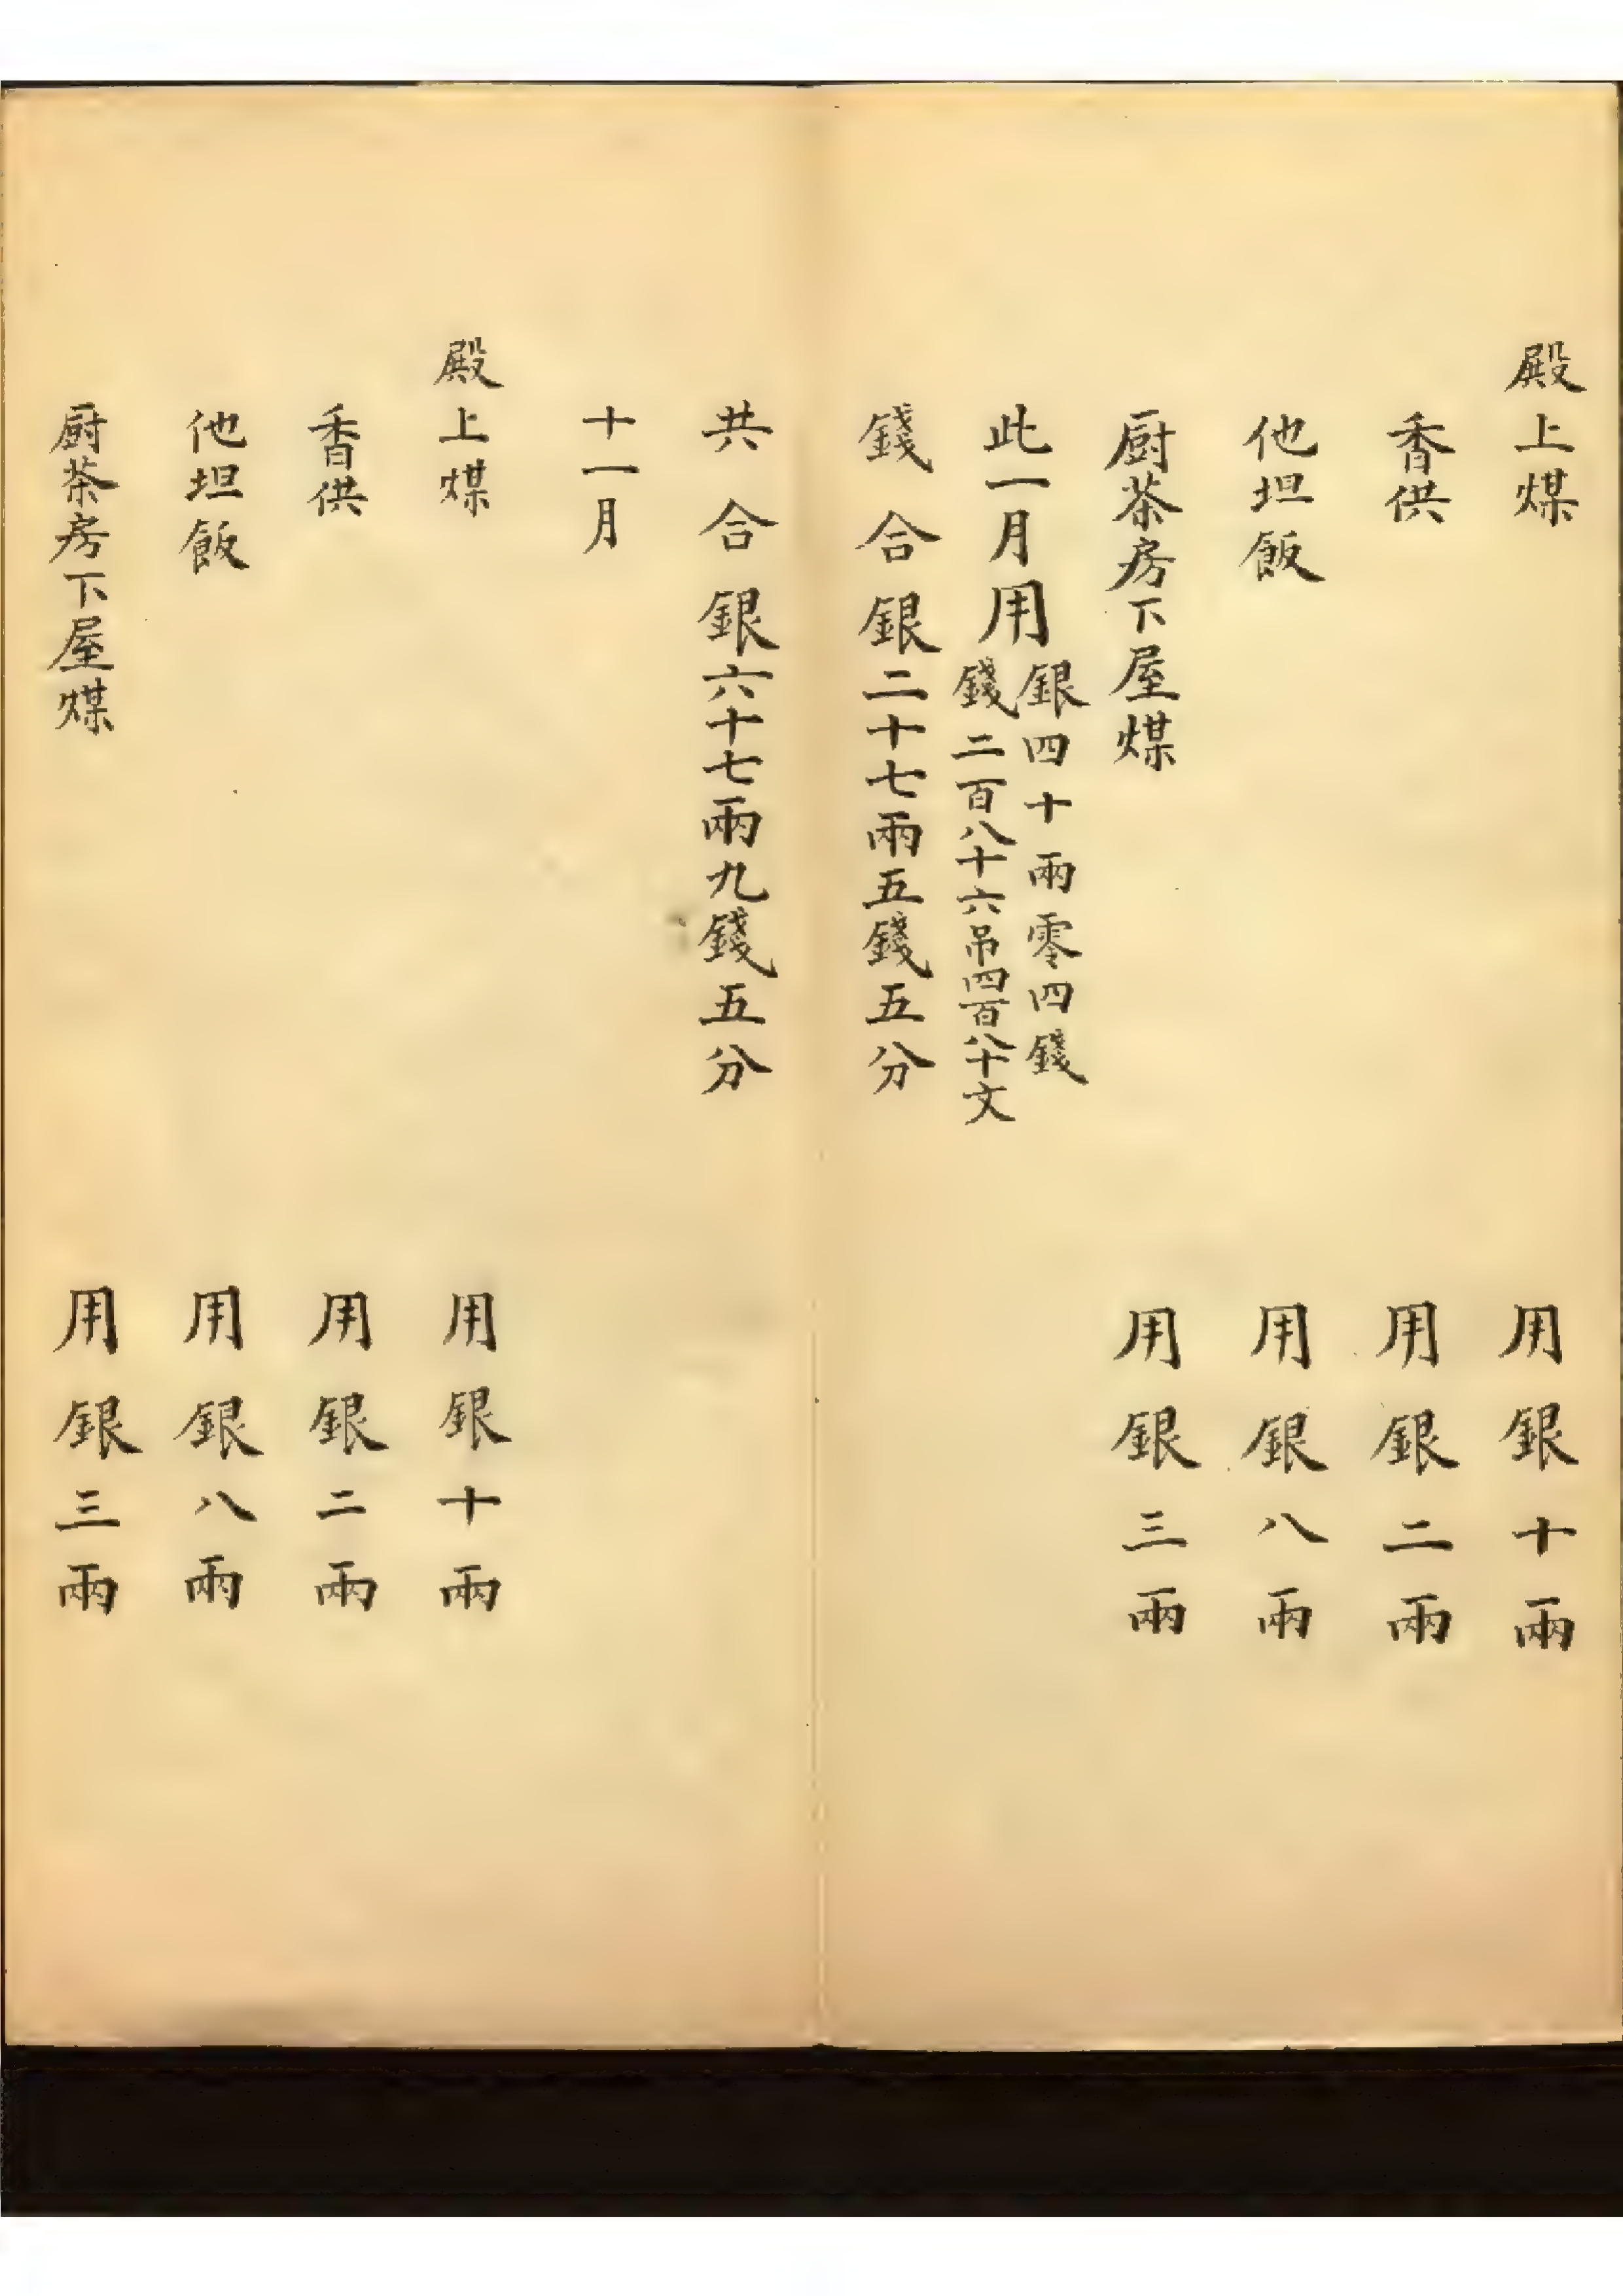 殿上煤 用銀十兩
香供 用銀二兩
他坦飯 用銀八兩
厨茶房下屋煤 用銀三兩
此一月用銀四十兩零四錢
錢二百八十六吊四百八十文
錢合銀二十七兩五錢五分
共合銀六十七兩九錢五分
十一月
殿上煤 用銀十兩
香供 用銀二兩
他坦飯 用銀八兩
厨茶房下屋煤 用銀三兩